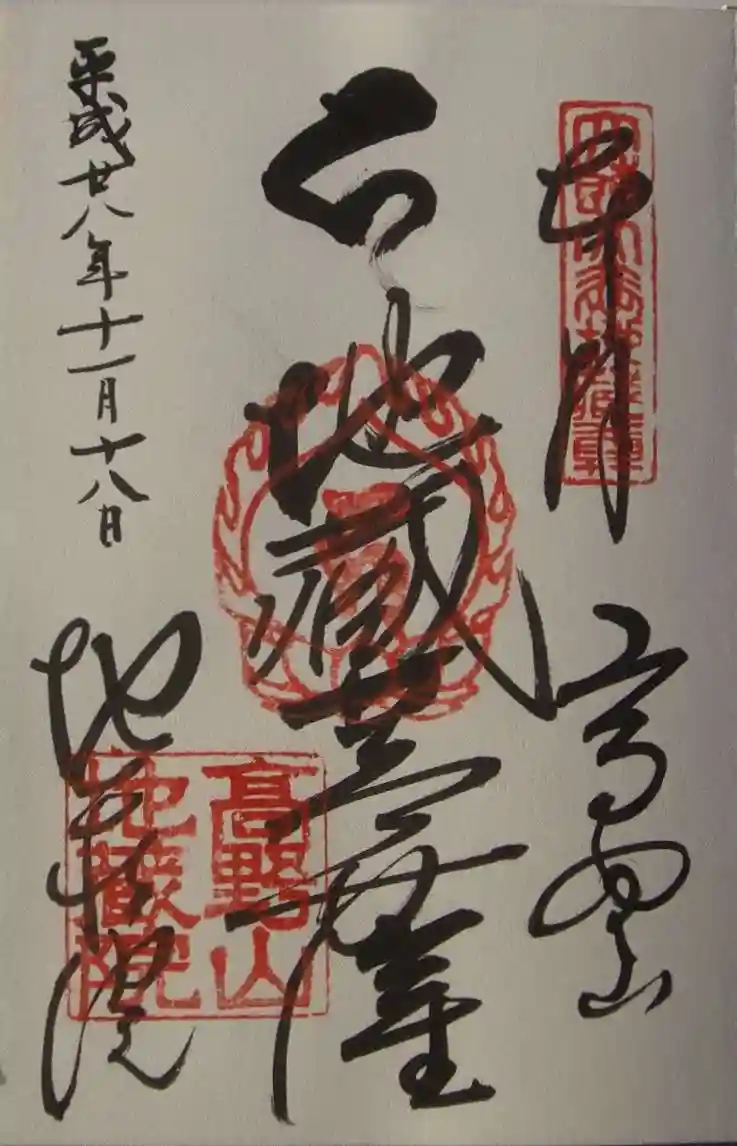 奉拝
高野山
地蔵菩薩
平成廿八年十一月十八日
地蔵院
高野山
地蔵院